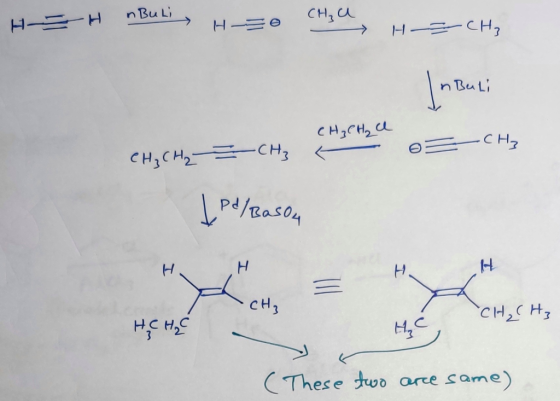 H≡H nBuLi H≡⊖ CH3Cl H≡CH3
nBuLi
CH3CH2≡CH3 CH3CH2Cl ⊖≡CH3
Pd/BaSO4
H H ≡ H H
H3CH2C CH3 H3C CH2CH3
(These two are same)